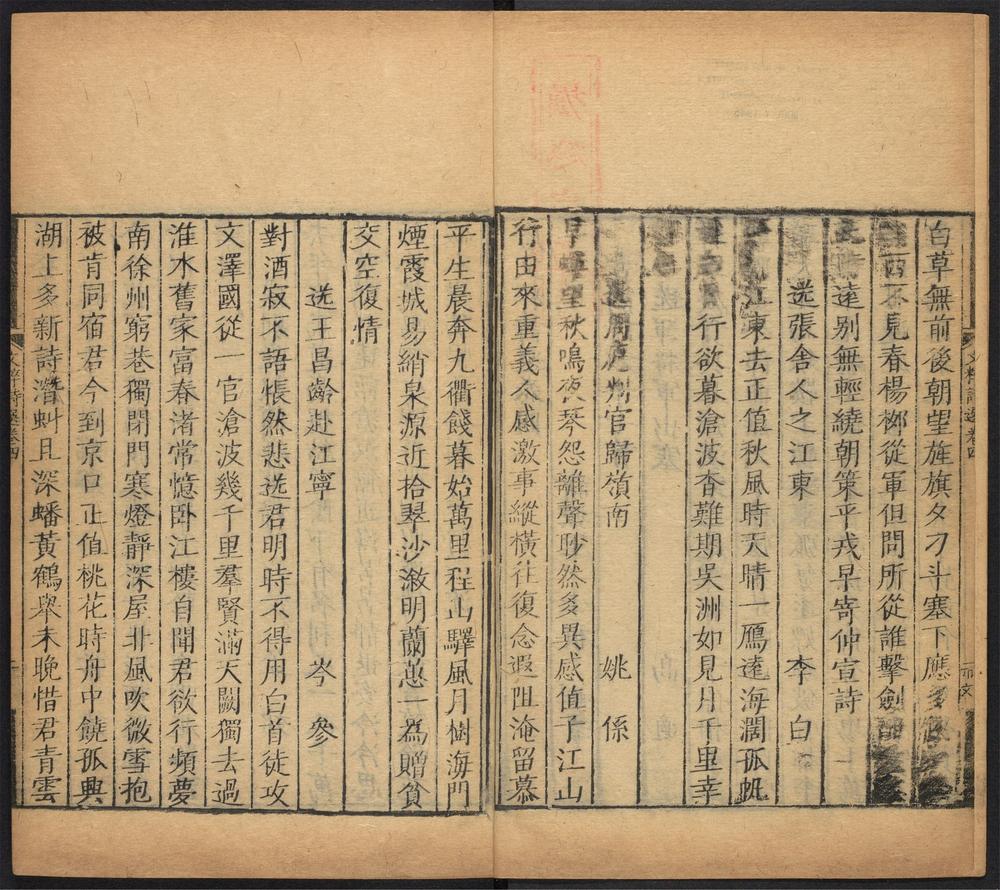 白草無前後朝望旌旗夕刁斗塞下應多
西不見春楊柳從軍但問所從誰擊劍
遠別無輕繞朝策平戎早寄仲宣詩
送張舍人之江東 李白
江東去正值秋風時天晴一鴈遠海濶孤帆
行欲暮滄波杳難期吳洲如見月千里幸
送周 州官歸嶺南 姚係
早蟬望秋鳴夜琴怨離聲眇然多異感值子江山
行由來重義人感激事縱橫往復念遐阻淹留慕
平生晨奔九衢餞暮始萬里程山驛風月樹海門
煙霞城易綃泉源近拾翠沙溆明蘭蕙一為贈貧
交空復情
送王昌齡赴江寧 岑參
對酒寂不語悵然悲送君明時不得用白首徒攻
文澤國從一官滄波幾千里羣賢滿天闕獨去過
淮水舊家富春渚常憶臥江樓自聞君欲行頻夢
南徐州窮巷獨閉門寒燈靜深屋北風吹微雪抱
被肯同宿君今到京口正值桃花時舟中饒孤興
湖上多新詩潛虯且深蟠黃鶴舉未晚惜君青雲